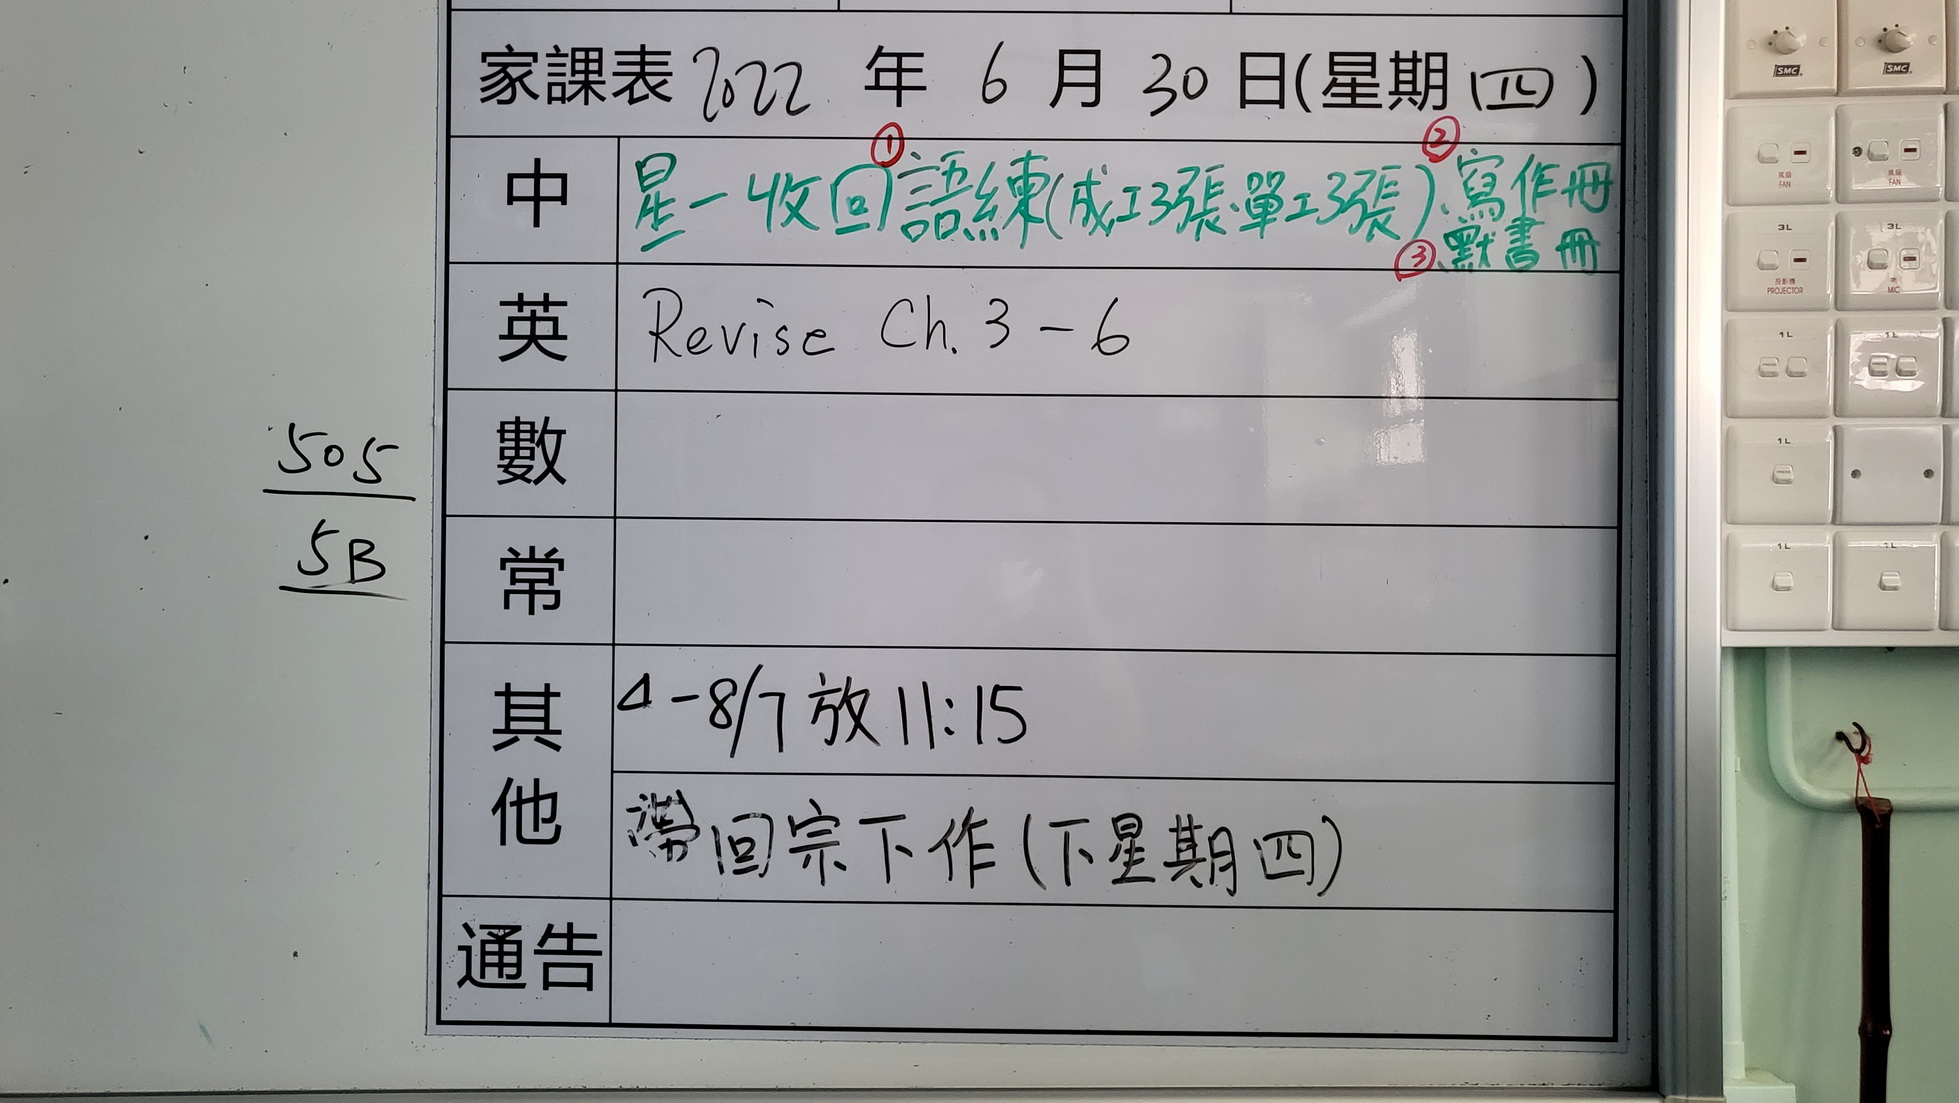 家課表 2022 年 6 月 30 日(星期四)
中 星一收回①語練(成工3張、單工3張)、②寫作冊
③、默書冊
英 Revise Ch. 3-6
數
常
505
5B
其他 4-8/7 放 11:15
帶回宗下作(下星期四)
通告
SMC SMC
風扇 FAN 風扇 FAN
3L 3L
投影機 PROJECTOR MIC
1L 1L
1L
1L 1L